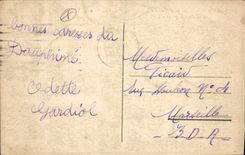 bonnes caresses du
Dauphiné.
Odette
Gardiol
Mesdemoiselles
Picard
N° de
Marseille
B-D-R-